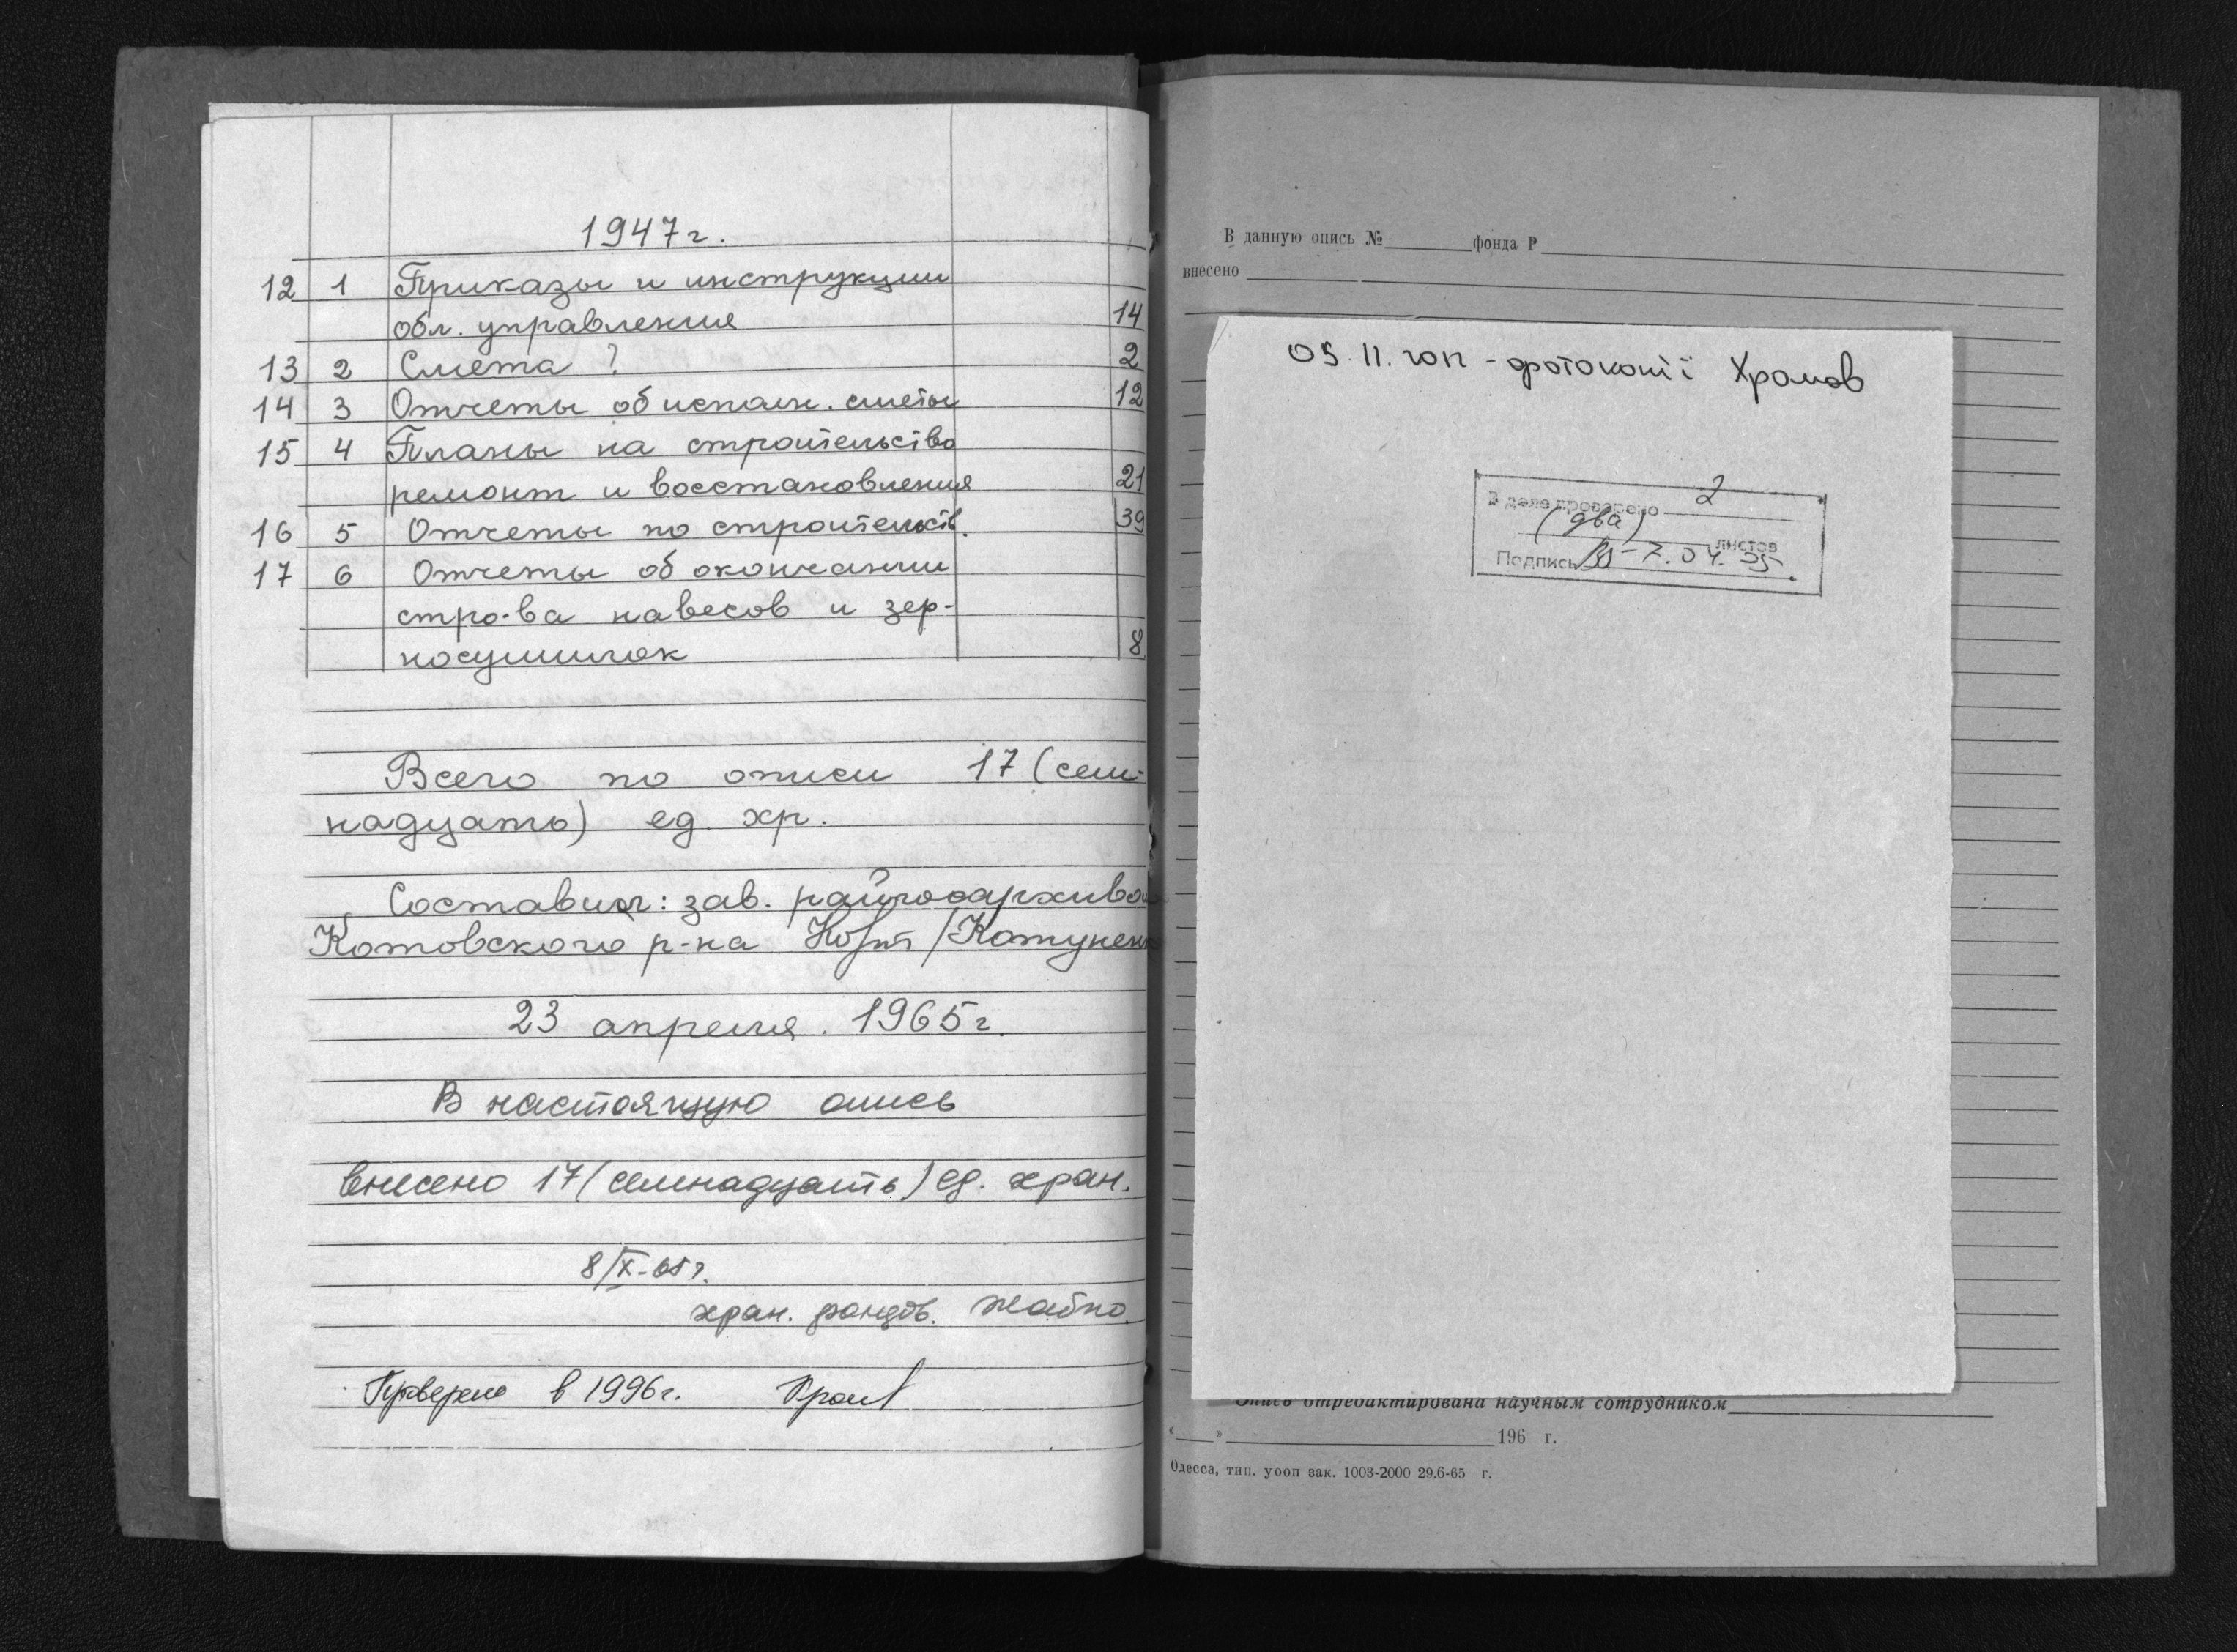 1947г.
12 1 Приказы и инструкции
обл. управления 14
13 2 Смета ? 2
14 3 Отчеты об исполн. сметы 12
15 4 Планы на строительство
ремонт и восстановления 21
16 5 Отчеты по строительств. 39
17 6 Отчеты об окончании
стро-ва навесов и зер-
носушилок 8
Всего по описи 17 (сем-
надцать) ед. хр.
Составил: зав. райгосархивом
Котовского р-на /Котуненк
23 апреля. 1965г.
В настоящую опись
внесено 17 (семнадцать) ед. хран.
8/X-65г.
хран. фондов. Жабко.
Проверено в 1996г.
В данную опись № фонда Р
внесено
05.11.2012 - фотокопії Храмов
В деле проверено 2
(два) листов
Подпись
Опись отредактирована научным сотрудником
« » 196 г.
Одесса, тип. уооп зак. 1003-2000 29.6-65 г.